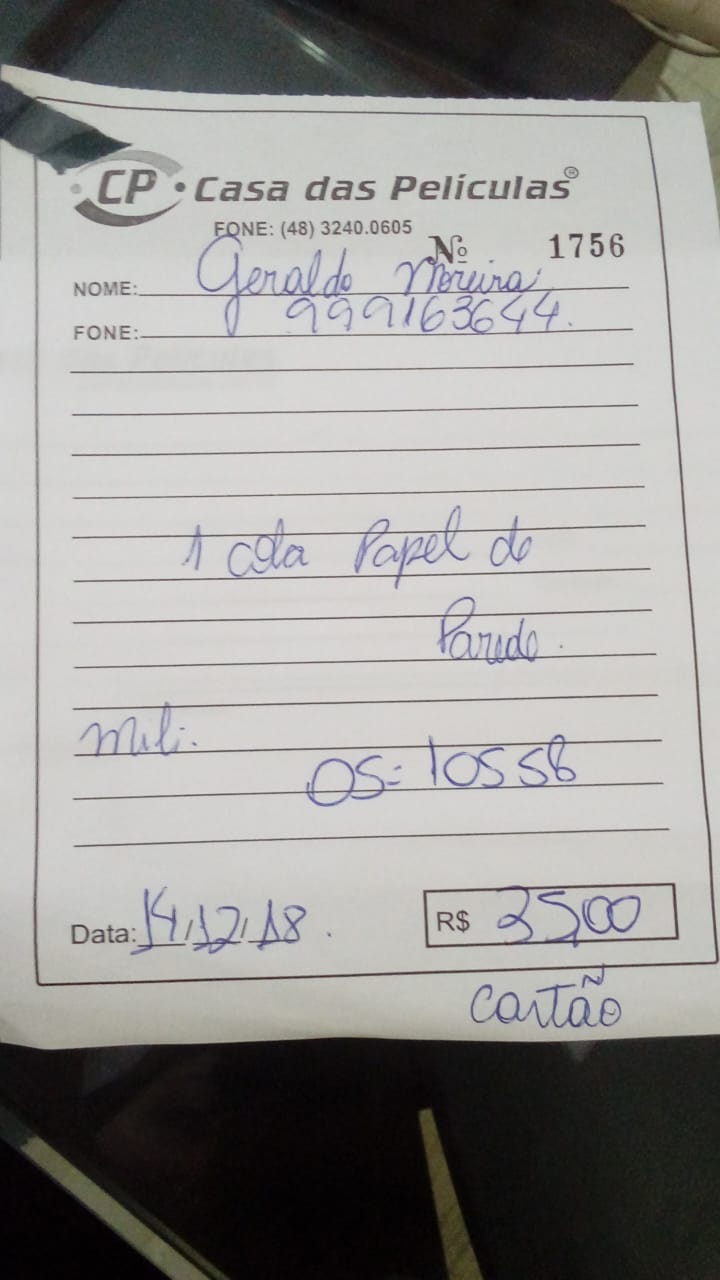 CP • Casa das Películas®
FONE: (48) 3240.0605
Nº 1756
NOME: Geraldo Moreira
FONE: 999163644.
1 cola Papel de
Parede.
Mili.
OS: 10558
Data: 14/12/18. R$ 35,00
cartão